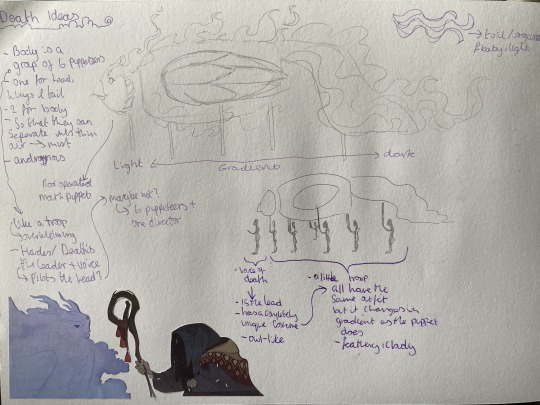 Death Ideas
- Body is a
group of 6 puppeteers
- one for head,
lungs & tail
- 2 for body
- So that they can
separate into thin
air → mist
- androgynous
Rod operated
mouth puppet
like a troop
- overwhelming
- Hades/Death is
the leader + voice
↳ Pilots the head?
maybe not?
↳ 6 puppeteers +
one director
→ foil/
& baby light
Light
Gradient
dark
- Voice of
death
- is the lead
- has a completely
unique costume
- owl-like
- a little troop
all have the
same outfit
but it changes in
gradient as the puppet
does
- feathery